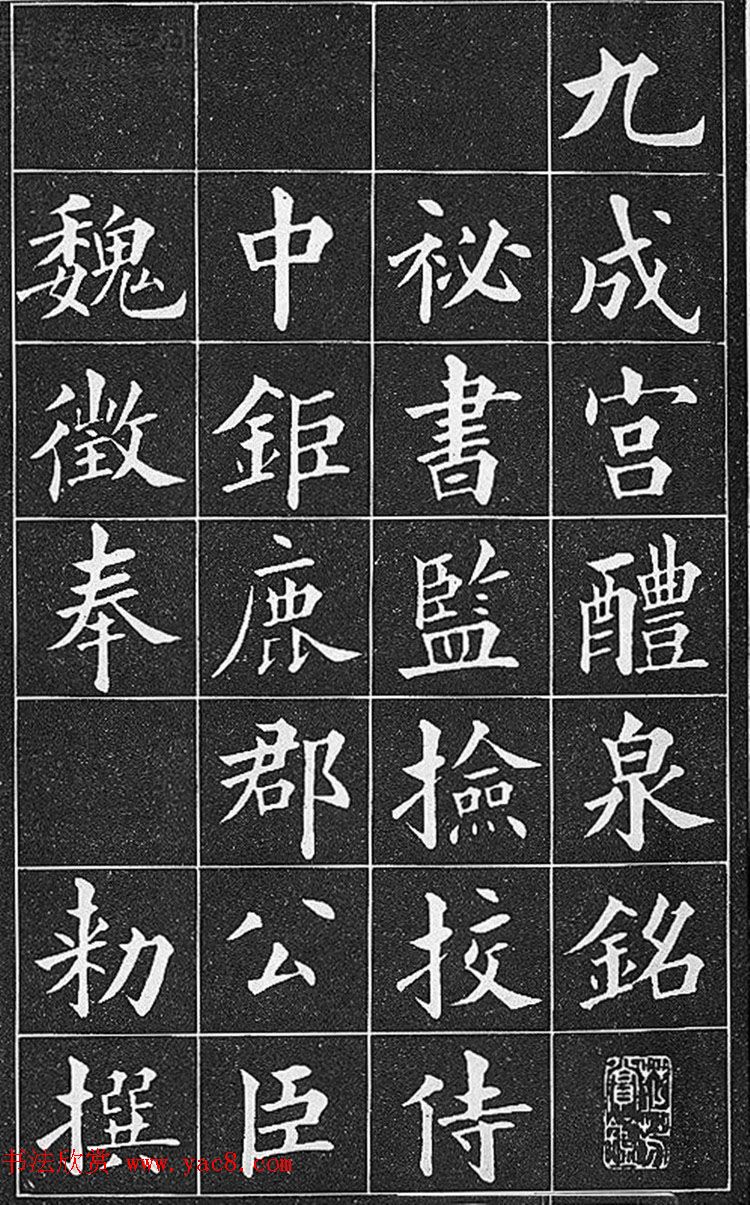 九成宮醴泉銘
祕書監撿挍侍
中鉅鹿郡公臣
魏徵奉 勑撰
书法欣赏 www.yac8.com